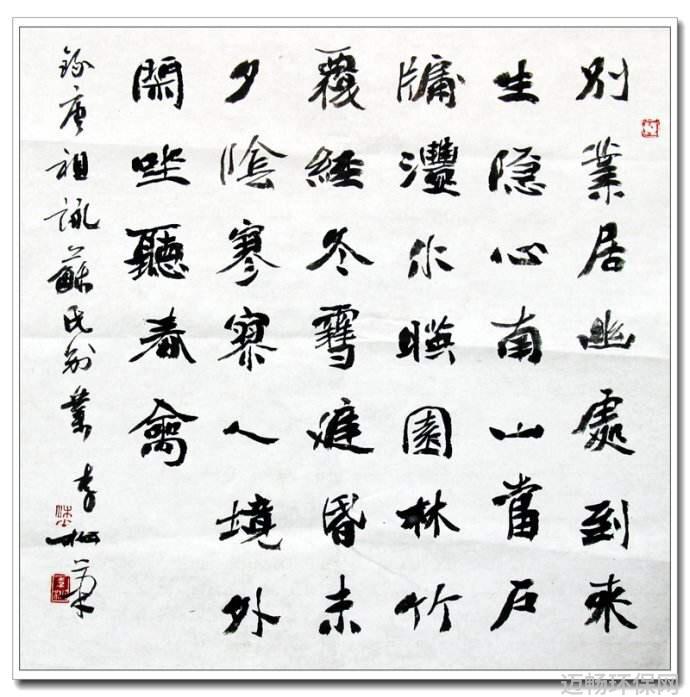 別業居幽處到来
生隠心南山當户
牖灃水暎園林竹
覆經冬雪庭昏未
夕陰寥寥人境外
閑坐聽春禽
錄唐祖詠蘇氏别業 李
迈畅环保网